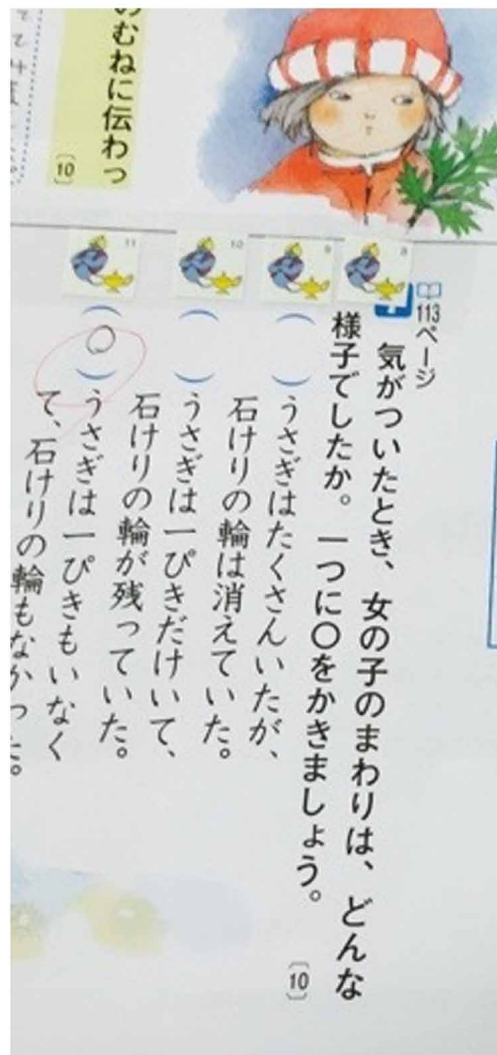 113ページ
気がついたとき、女の子のまわりは、どんな
様子でしたか。一つに○をかきましょう。
〔10〕
8
9
10
11
（　）うさぎはたくさんいたが、
石けりの輪は消えていた。
（　）うさぎは一ぴきだけいて、
石けりの輪が残っていた。
（○）うさぎは一ぴきもいなく
て、石けりの輪もなかった。
のむねに伝わっ
〔10〕